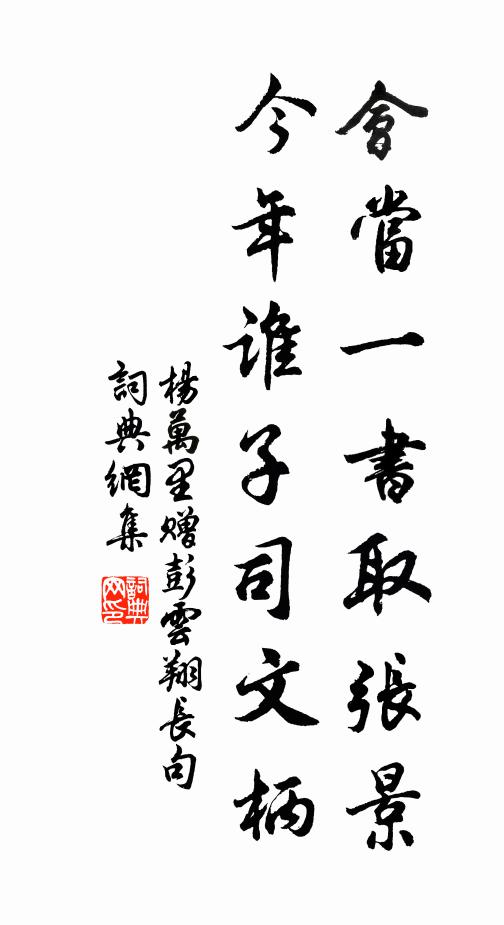 會當一書取張景
今年誰子司文柄
楊萬里贈彭雲翔長句
詞典網集
詞典
网印